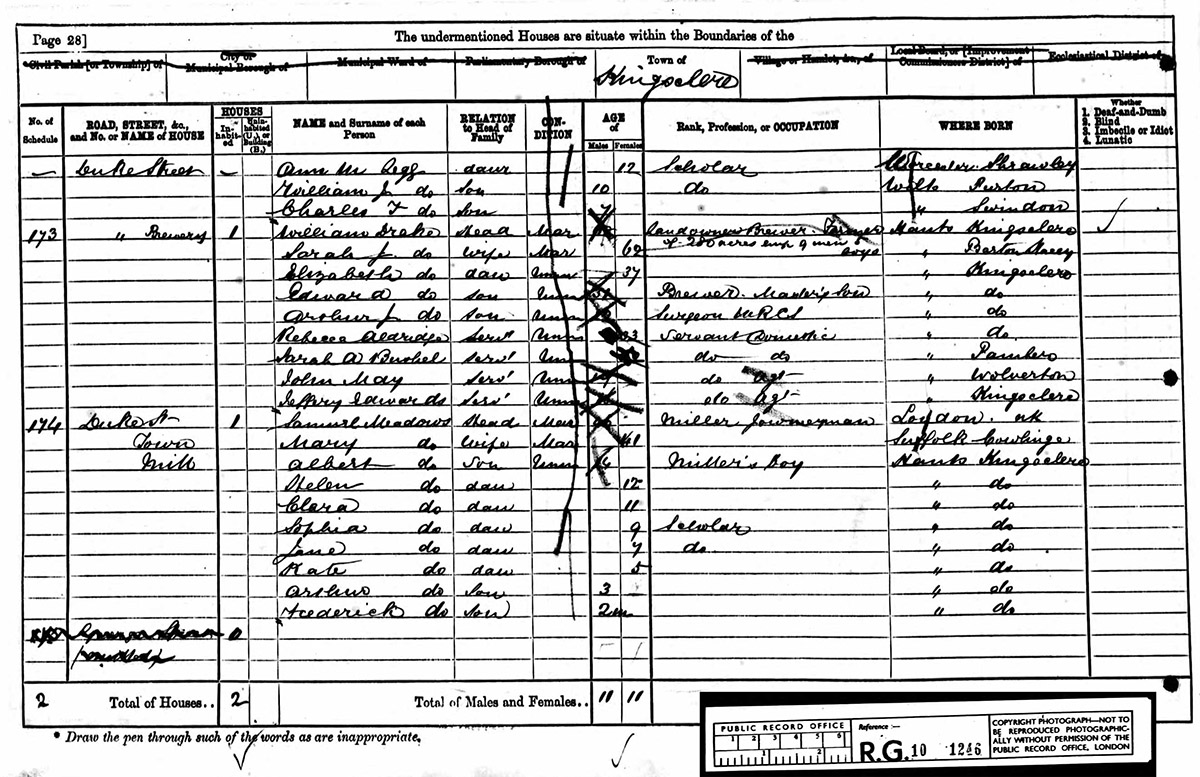 Page 28]
The undermentioned Houses are situate within the Boundaries of the
Civil Parish [or Township] of
City or Municipal Borough of
Municipal Ward of
Parliamentary Borough of
Town of
Kingsclere
Village or Hamlet, &c., of
Local Board, or [Improvement Commissioners District] of
Ecclesiastical District of
No. of Schedule
ROAD, STREET, &c., and No. or NAME of HOUSE
HOUSES
In-habit-ed
Unin-habited (U.), or Building (B.)
NAME and Surname of each Person
RELATION to Head of Family
CON-DITION
AGE of
Males
Females
Rank, Profession, or OCCUPATION
WHERE BORN
Whether
1. Deaf-and-Dumb
2. Blind
3. Imbecile or Idiot
4. Lunatic
— Duke Street — Ann M Legg daur 12 Scholar Worcester Shrawley
William J do Son 10 do Wilts Purton
Charles F do Son 7 " Swindon
173 " Brewery 1 William Drake Head Mar Landowner Brewer Farmer Hants Kingsclere
of 280 acres emp 9 men boys
Sarah J. do Wife Mar 62 " Barton Stacey
Elizabeth do daur Unm 37 " Kingsclere
Edward do son Unm Brewer Master's Son " do
Arthur J. do Son Unm Surgeon MRCS " do
Rebecca Aldridge Servt Unm 33 Servant Domestic " do
Sarah A Bushel Servt Un do do " Pamber
John May Servt Unm do Agt " Wolverton
Jeffery Edwards Servt Unm do Agt " Kingsclere
174 Duke St 1 Samuel Meadows Head Mar Miller Journeyman London nk
Town Mary do Wife Mar 41 Suffolk Cowlinge
Mill Albert do Son Unm Miller's Boy Hants Kingsclere
Helen do daur 12 " do
Clara do daur 11 " do
Sophia do daur 9 Scholar " do
Jane do daur 7 do " do
Kate do daur 5 " do
Arthur do Son 3 " do
Frederick do Son 2m " do
0
2 Total of Houses.. 2 Total of Males and Females.. 11 11
* Draw the pen through such of the words as are inappropriate.
PUBLIC RECORD OFFICE
1 2 3 4 5 6
1 2
Reference :—
R.G. 10 1246
COPYRIGHT PHOTOGRAPH—NOT TO BE REPRODUCED PHOTOGRAPHIC-ALLY WITHOUT PERMISSION OF THE PUBLIC RECORD OFFICE, LONDON